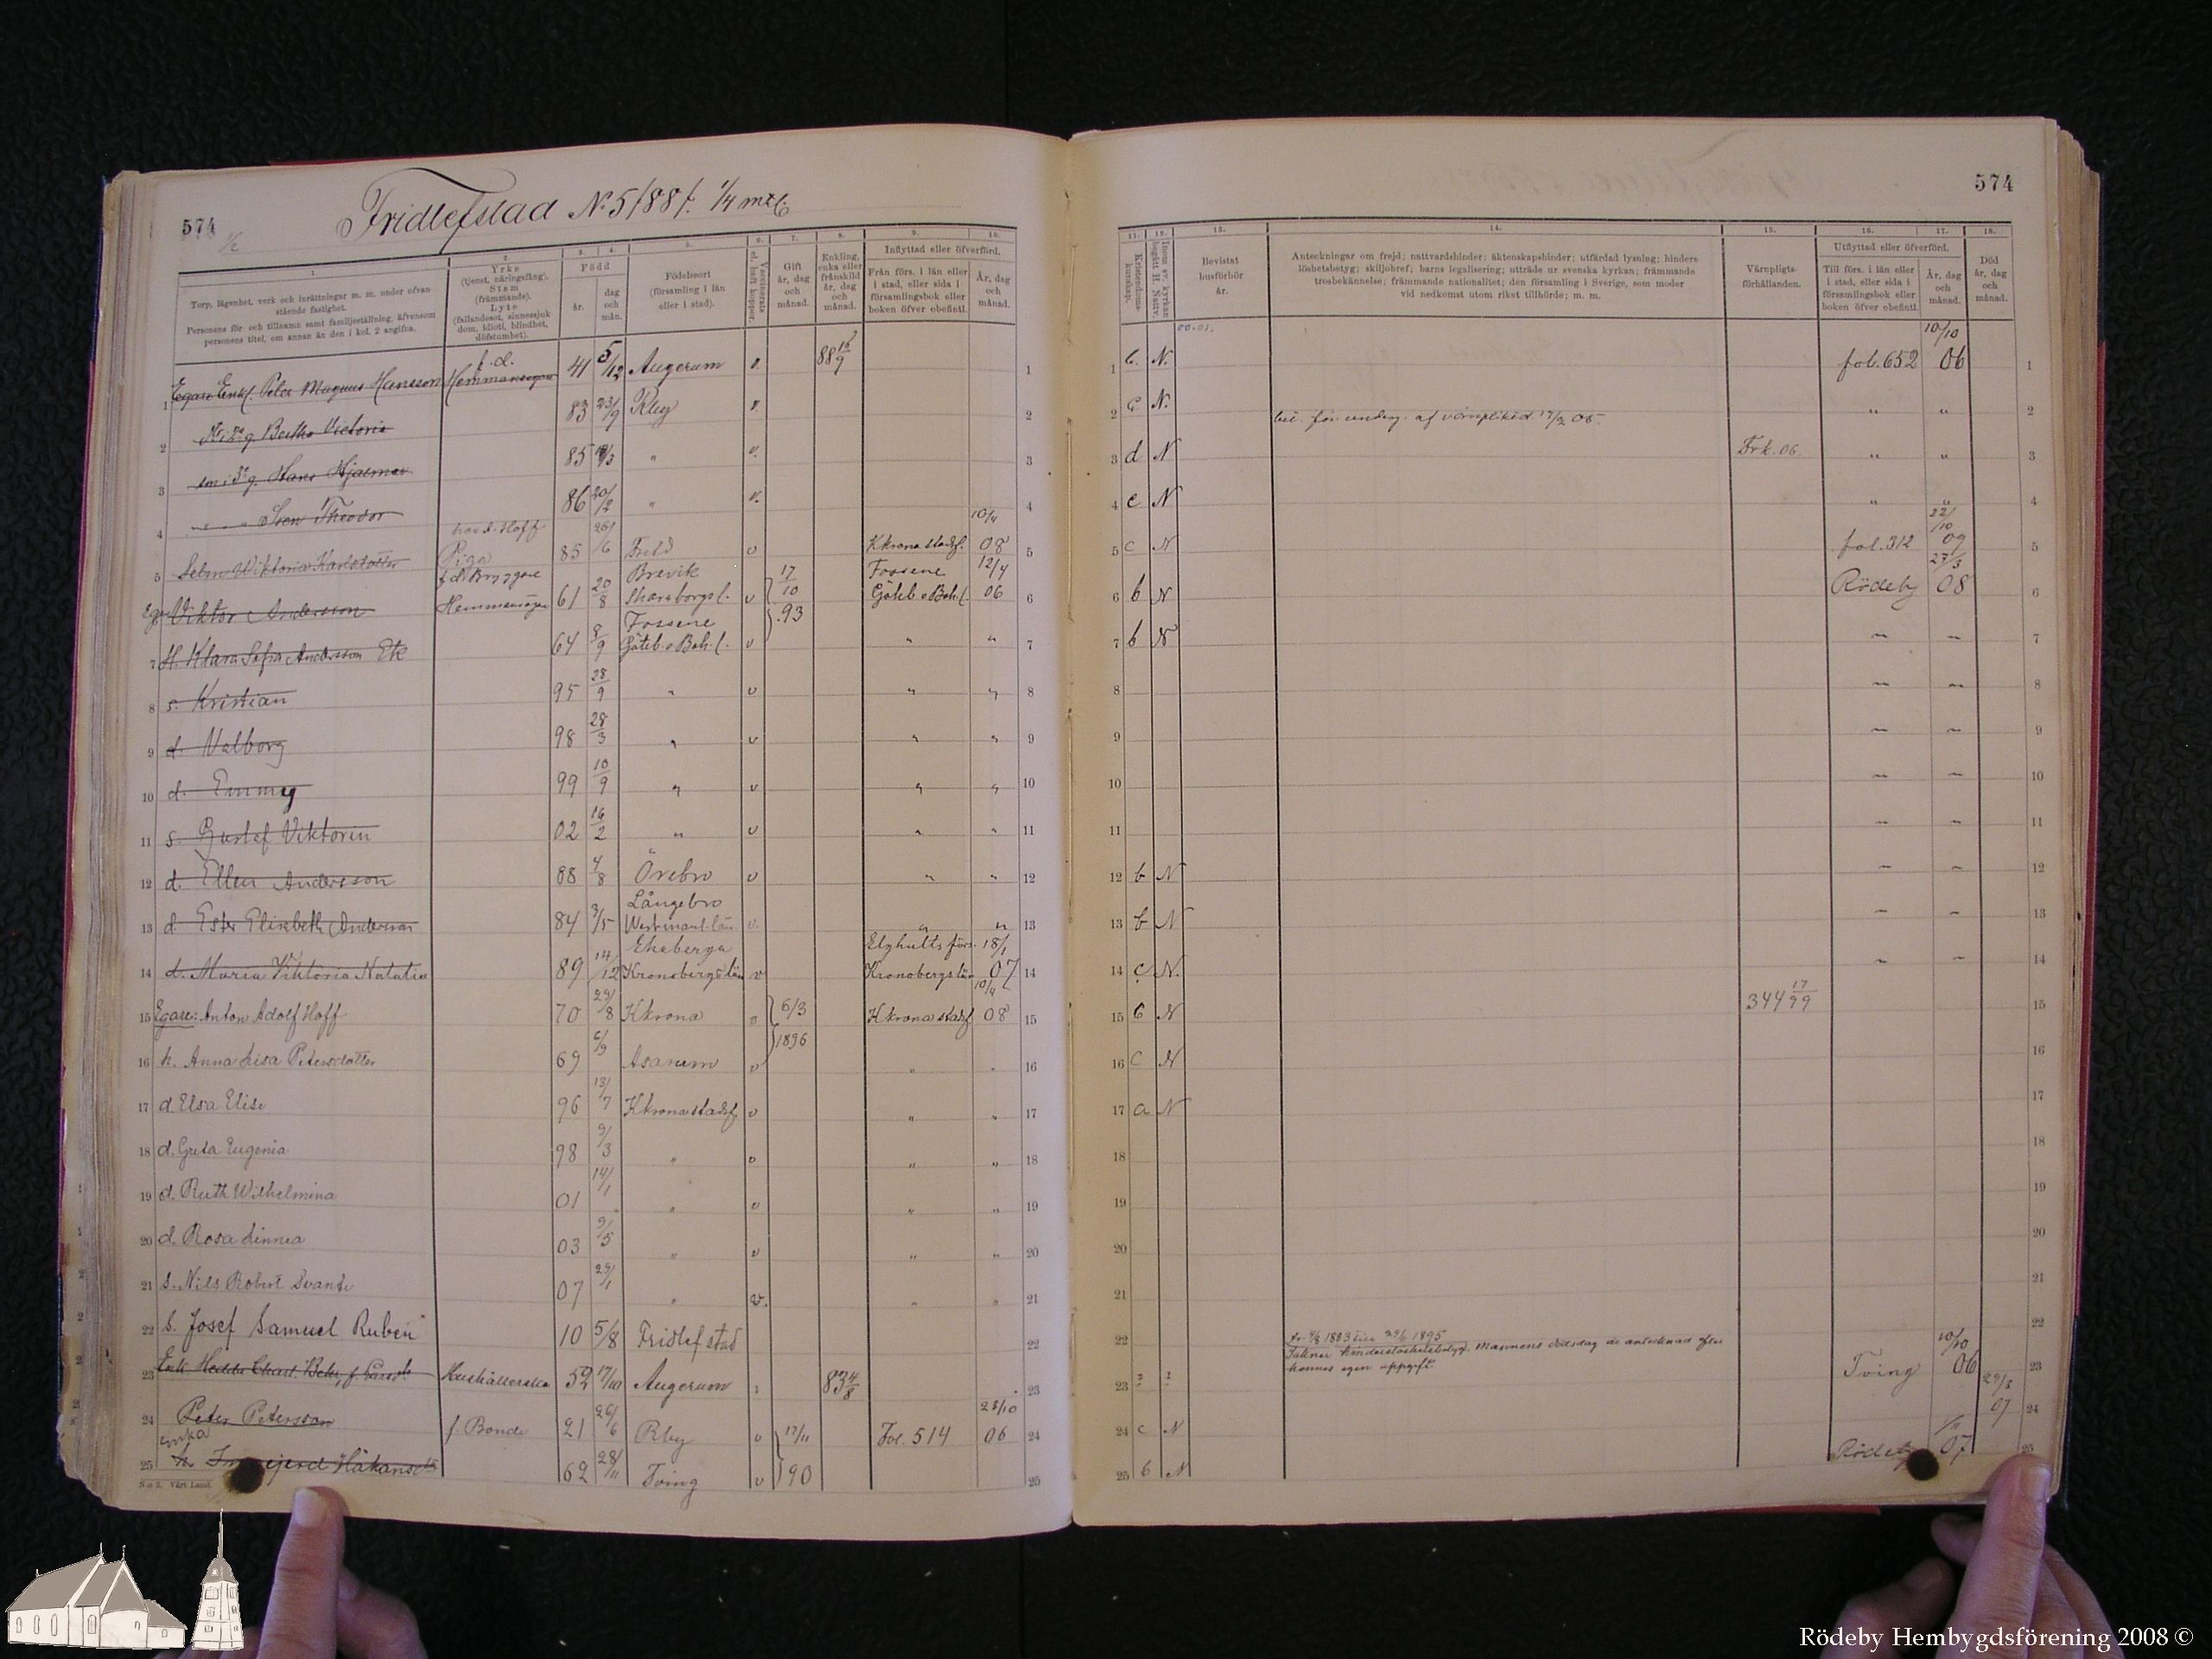 574
Fridlefstad No 5/88 f. 1/4 mtl
574
1. 2. 3. 4. 5. 6. 7. 8. 9. 10.
Torp, lägenhet, verk och inrättningar m. m. under ofvanstående fastighet.
Personens för- och tillnamn samt familjeställning, äfvensom personens titel, om annan än den i kol. 2 angifna.
Yrke (tjenst, näringsfång). Stam (främmande). Lyte (fallandesot, sinnessjukdom, idioti, blindhet, döfstumhet).
Född
år.
dag och mån.
Födelseort (församling i län eller i stad).
Gift år, dag och månad.
Enkling, enka eller frånskild år, dag och månad.
Inflyttad eller öfverförd.
Från förs. i län eller i stad, eller sida i församlingsbok eller boken öfver obefintl.
År, dag och månad.
11. 12. 13. 14. 15. 16. 17. 18.
Kristendomskunskap.
Bevistat husförhör år.
Anteckningar om frejd; nattvardshinder; äktenskapshinder; utfärdad lysning; hinderslöshetsbetyg; skiljobref; barns legalisering; utträde ur svenska kyrkan; främmande trosbekännelse; främmande nationalitet; den församling i Sverige, som moder vid nedkomst utom riket tillhörde; m. m.
Värnpligtsförhållanden.
Utflyttad eller öfverförd.
Till förs. i län eller i stad, eller sida i församlingsbok eller boken öfver obefintl.
År, dag och månad.
Död år, dag och månad.
00.01.
1 Egare Enkl. Peter Magnus Hansson f.d. Hemmansegare 41 5/12 Augerum v. 88 1 C. N. fol. 652 10/10 06 1
2 Bertha Victoria 83 23/9 Rby v. 2 N. " " 2
3 Hans Hjalmar 85 " v. 3 d N Frk. 06. " " 3
4 " " Sven Theodor 86 20/2 " v. 4 c N " " 4
5 Selma Wiktoria Karlsdotter hos A. Hoff Piga 85 26/6 Frld v Kkrona stadsf. 10/4 08 5 c N fol. 312 22/10 09 5
6 Egare Viktor Andersson f.d. Bryggare Hemmansegare 61 20/8 Brevik Skaraborgs l. v 17/10 93 Fossene Göteb. o Boh. l. 12/4 06 6 b N Rödeby 27/3 08 6
7 H. Klara Sofia Andersson Ek 64 8/9 Fossene Göteb. o Boh. l. v " " 7 b N 7
8 s. Kristian 95 28/9 " v " " 8
9 d. Valborg 98 28/3 " v " " 9
10 d. Emmy 99 10/9 " v " " 10
11 s. Gustaf Viktorin 02 16/2 " v " " 11
12 d. Ellen Andersson 88 4/8 Örebro v " " 12 b N 12
13 d. Ester Elisabeth Andersson 84 3/5 Långebro Westmanl. län v. " " 13 b N 13
14 d. Maria Viktoria Natalia 89 14/12 Ekeberga Kronobergs län v Elghults förs. Kronobergs län 18/1 07 14 c N. 14
15 Egare: Anton Adolf Hoff 70 29/8 Kkrona v 6/3 1896 Kkrona stadsf 10/4 08 15 C N 344 17/99 15
16 h. Anna Lisa Petersdotter 69 6/9 Asarum v " " 16 C N 16
17 d. Elsa Elise 96 13/7 Kkrona stadsf v " " 17 a N 17
18 d. Greta Eugenia 98 9/3 " v " " 18
19 d. Ruth Wilhelmina 01 14/1 " v " " 19
20 d. Rosa Linnea 03 9/5 " v " " 20
21 s. Nils Robert Svante 07 29/1 " v. " " 21
22 s. Josef Samuel Ruben 10 5/8 Fridlefstad 22
23 Enk. Hedda Charl. Behr, f. Hushållerska 52 17/10 Augerum 83 4/8 23 Saknar hinderslöshetsbetyg. Mannens dödsdag är antecknad efter hennes egen uppgift. Tving 10/10 06 23
24 Peter Petersson f. Bonde 21 26/6 Rby v 17/11 90 Fol. 514 23/10 06 24 c N 29/3 07 24
25 enka h. Ingejerd Håkansdr 62 28/11 Tving v 25 b N Rödeby 07 25
No 2. Vårt Land.
Rödeby Hembygdsförening 2008 ©